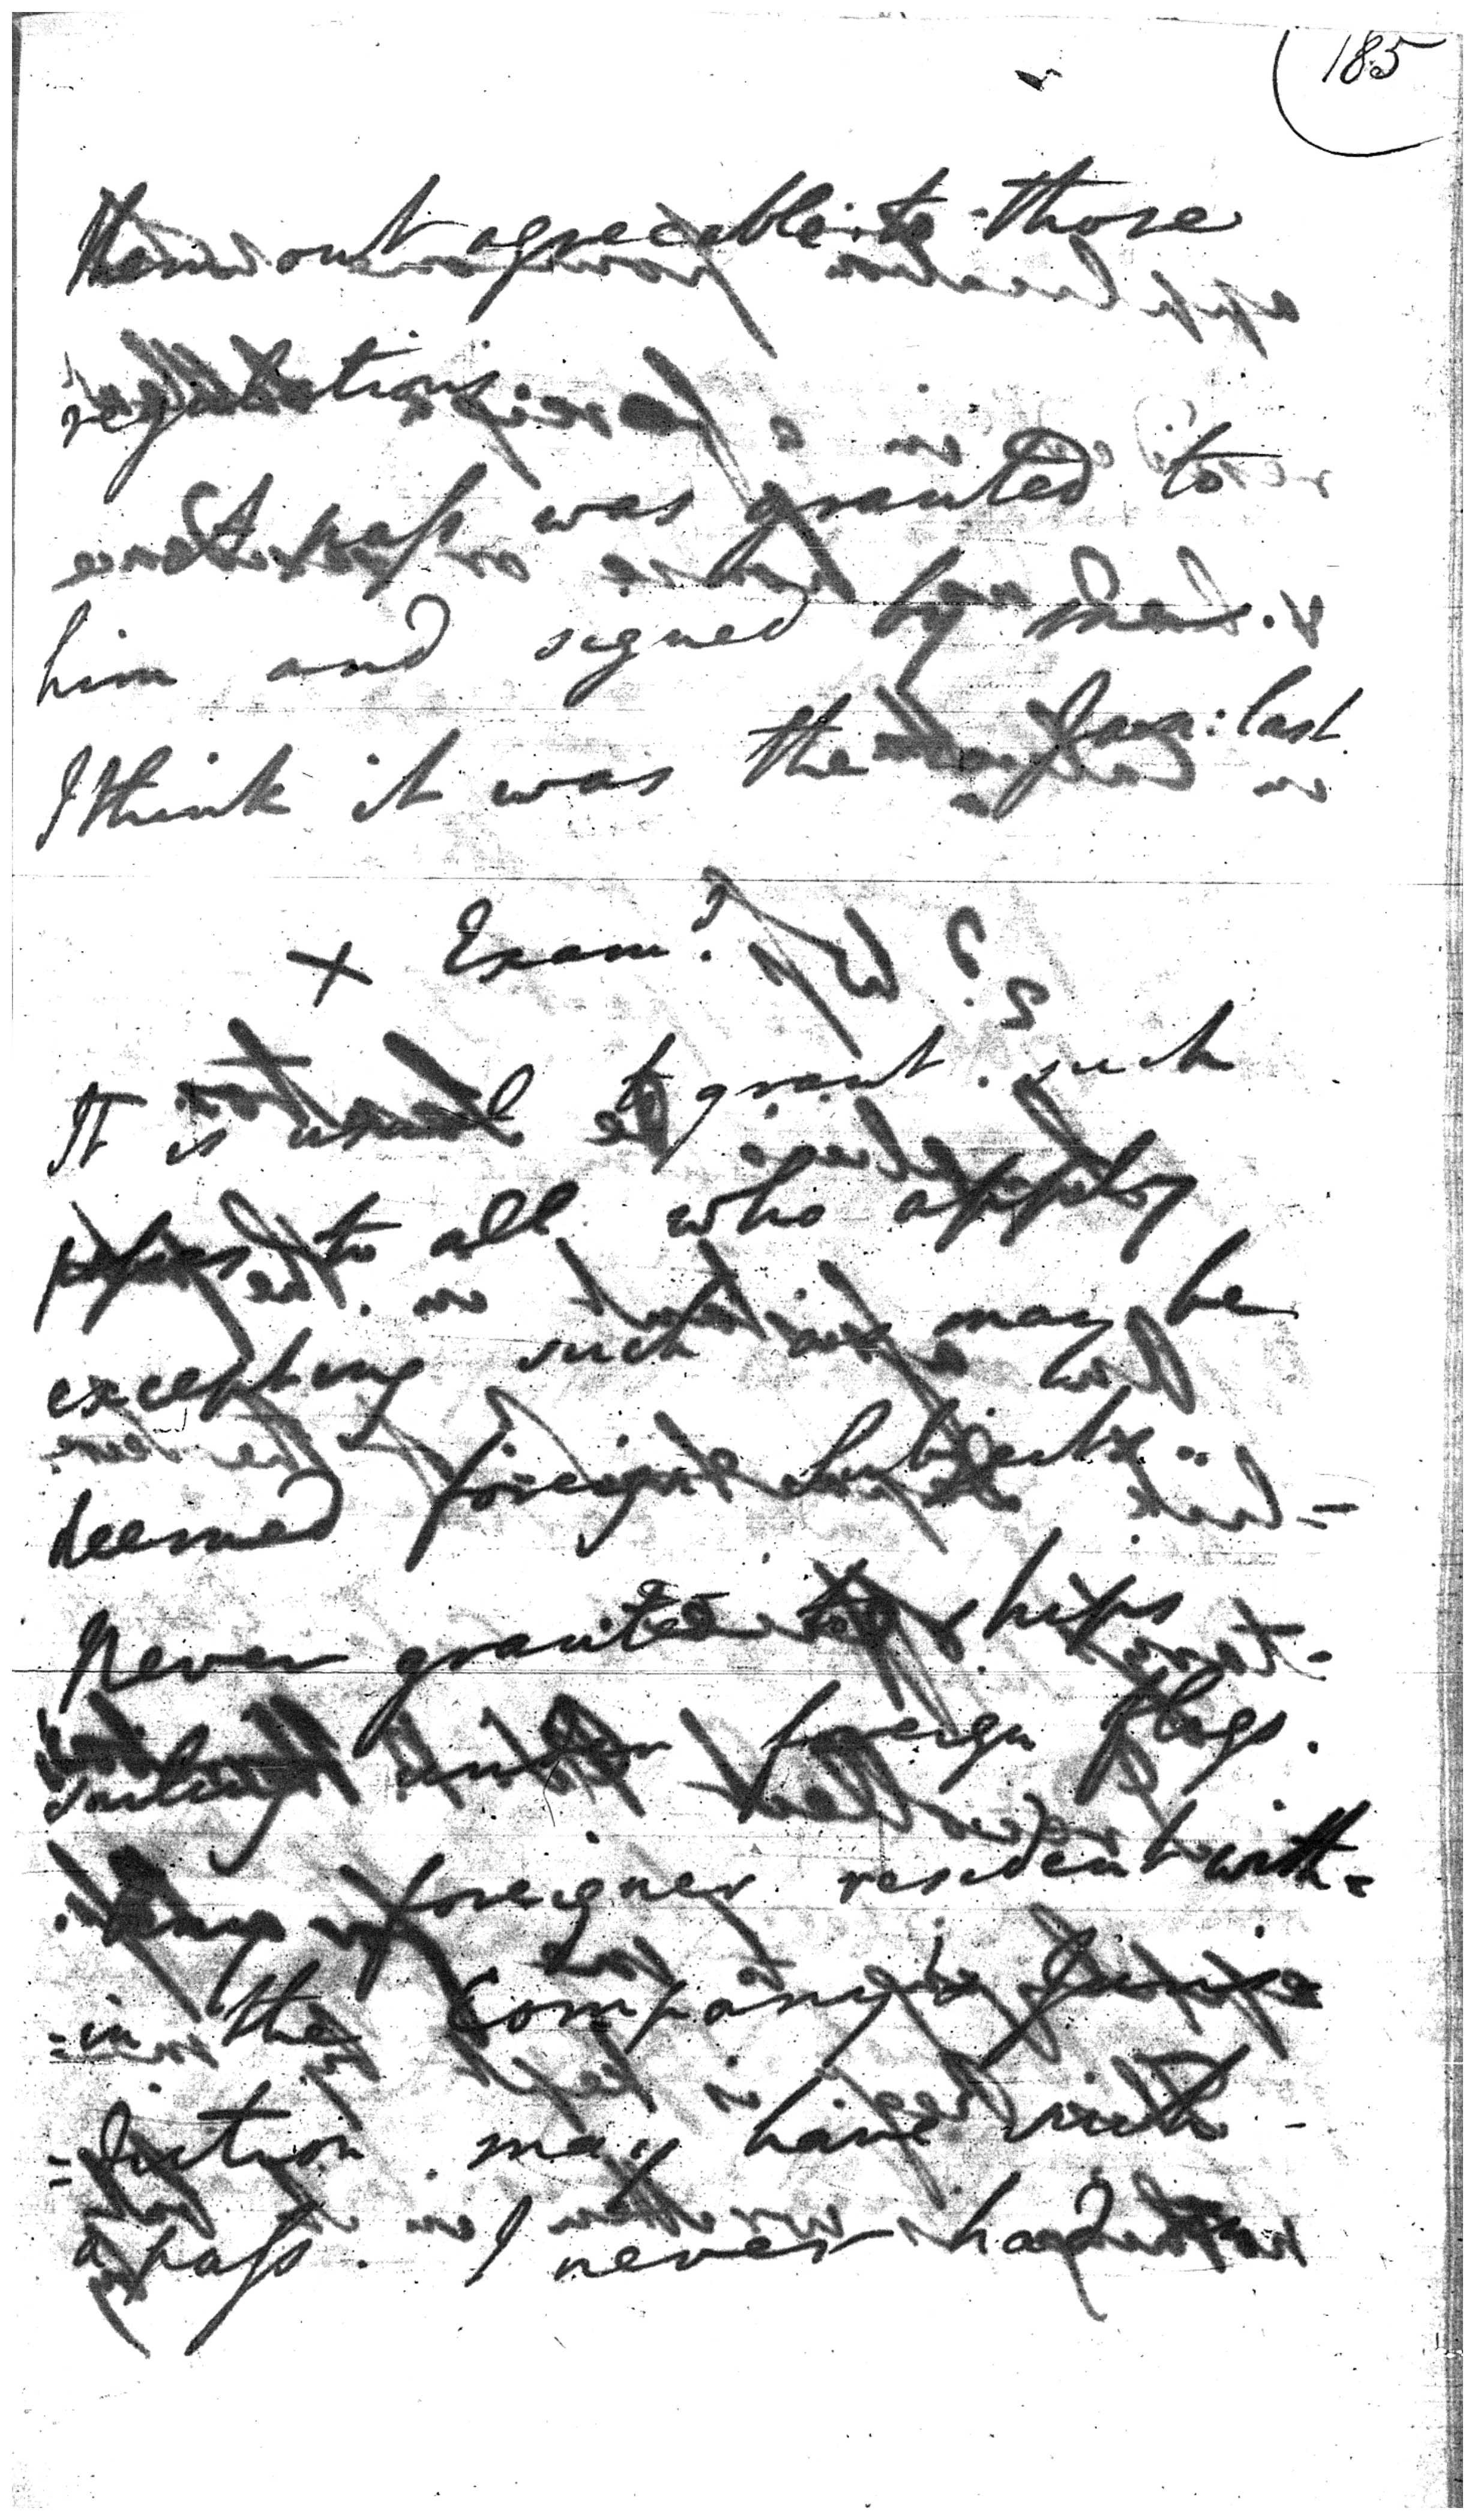 185
them out agreeable to those
regulations.
A pass was granted to
him and signed by
I think it was the Jan: last
X Exam.d
It is usual to grant such
passes to all who apply
excepting such as may be
deemed foreign subjects.
Never granted to ships
sailing under foreign flags.
foreigner resident with=
=in the Company's Juris
=diction may have such
a pass. I never had